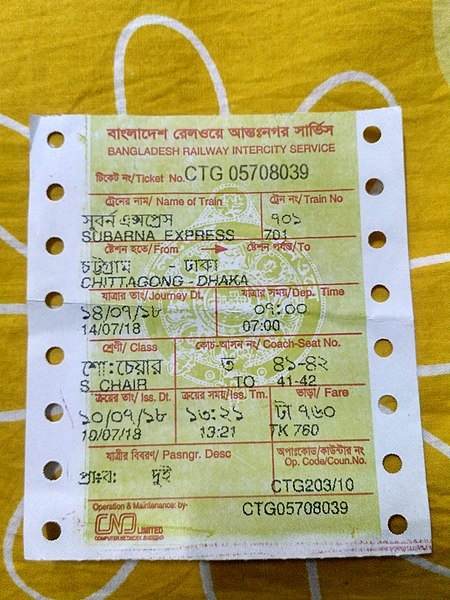 বাংলাদেশ রেলওয়ে আন্তঃনগর সার্ভিস
BANGLADESH RAILWAY INTERCITY SERVICE
টিকেট নং/Ticket No. CTG 05708039
ট্রেনের নাম/ Name of Train ট্রেন নং/ Train No
সুবর্ন এক্সপ্রেস ৭০১
SUBARNA EXPRESS 701
ষ্টেশন হতে/From ষ্টেশন পর্যন্ত/To
চট্টগ্রাম - ঢাকা
CHITTAGONG - DHAKA
যাত্রার তাং/Journey Dt. যাত্রার সময়/Dep. Time
১৪/০৭/১৮ ০৭:০০
14/07/18 07:00
শ্রেণী/ Class কোচ-আসন নং/ Coach-Seat No.
শো:চেয়ার ত ৪১-৪২
S_CHAIR TO 41-42
ক্রয়ের তাং/Iss. Dt. ক্রয়ের সময়/Iss. Tm. ভাড়া/ Fare
১০/০৭/১৮ ১৩:২১ টা ৭৬০
10/07/18 13:21 TK 760
যাত্রীর বিবরণ/ Pasngr. Desc অপাঃকোড/কাউন্টার নং
Op. Code/Coun.No.
প্রা:ব: দুই
CTG203/10
Operation & Maintenance: by- CTG05708039
CNS LIMITED